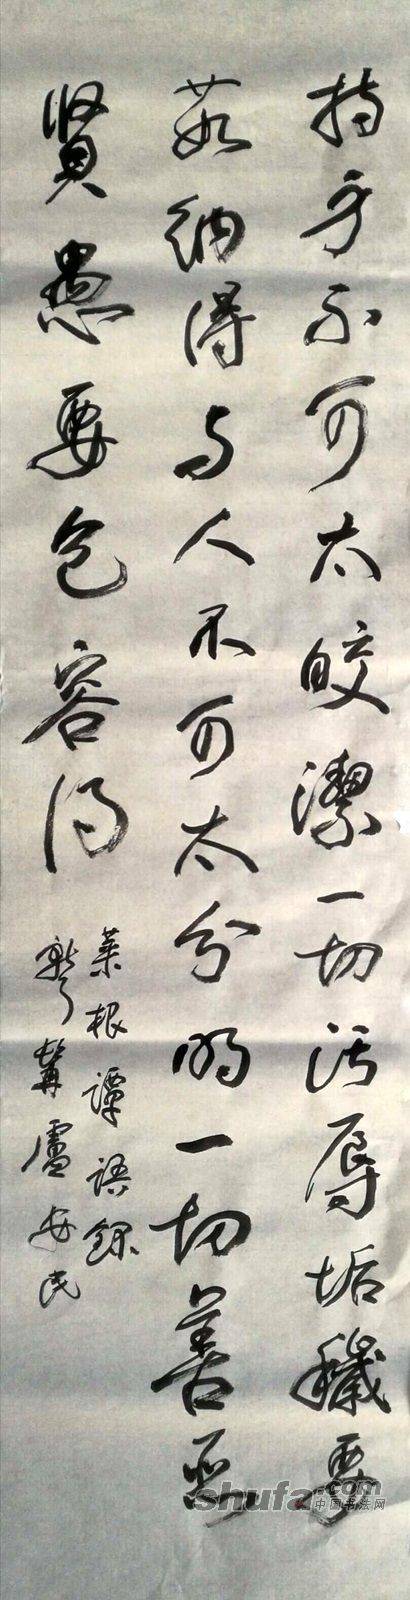 持身不可太皎潔一切污辱垢穢要
茹納得与人不可太分明一切善惡
賢愚要包容得
菜根譚語錄
廬安民
shufa.com
中国书法网